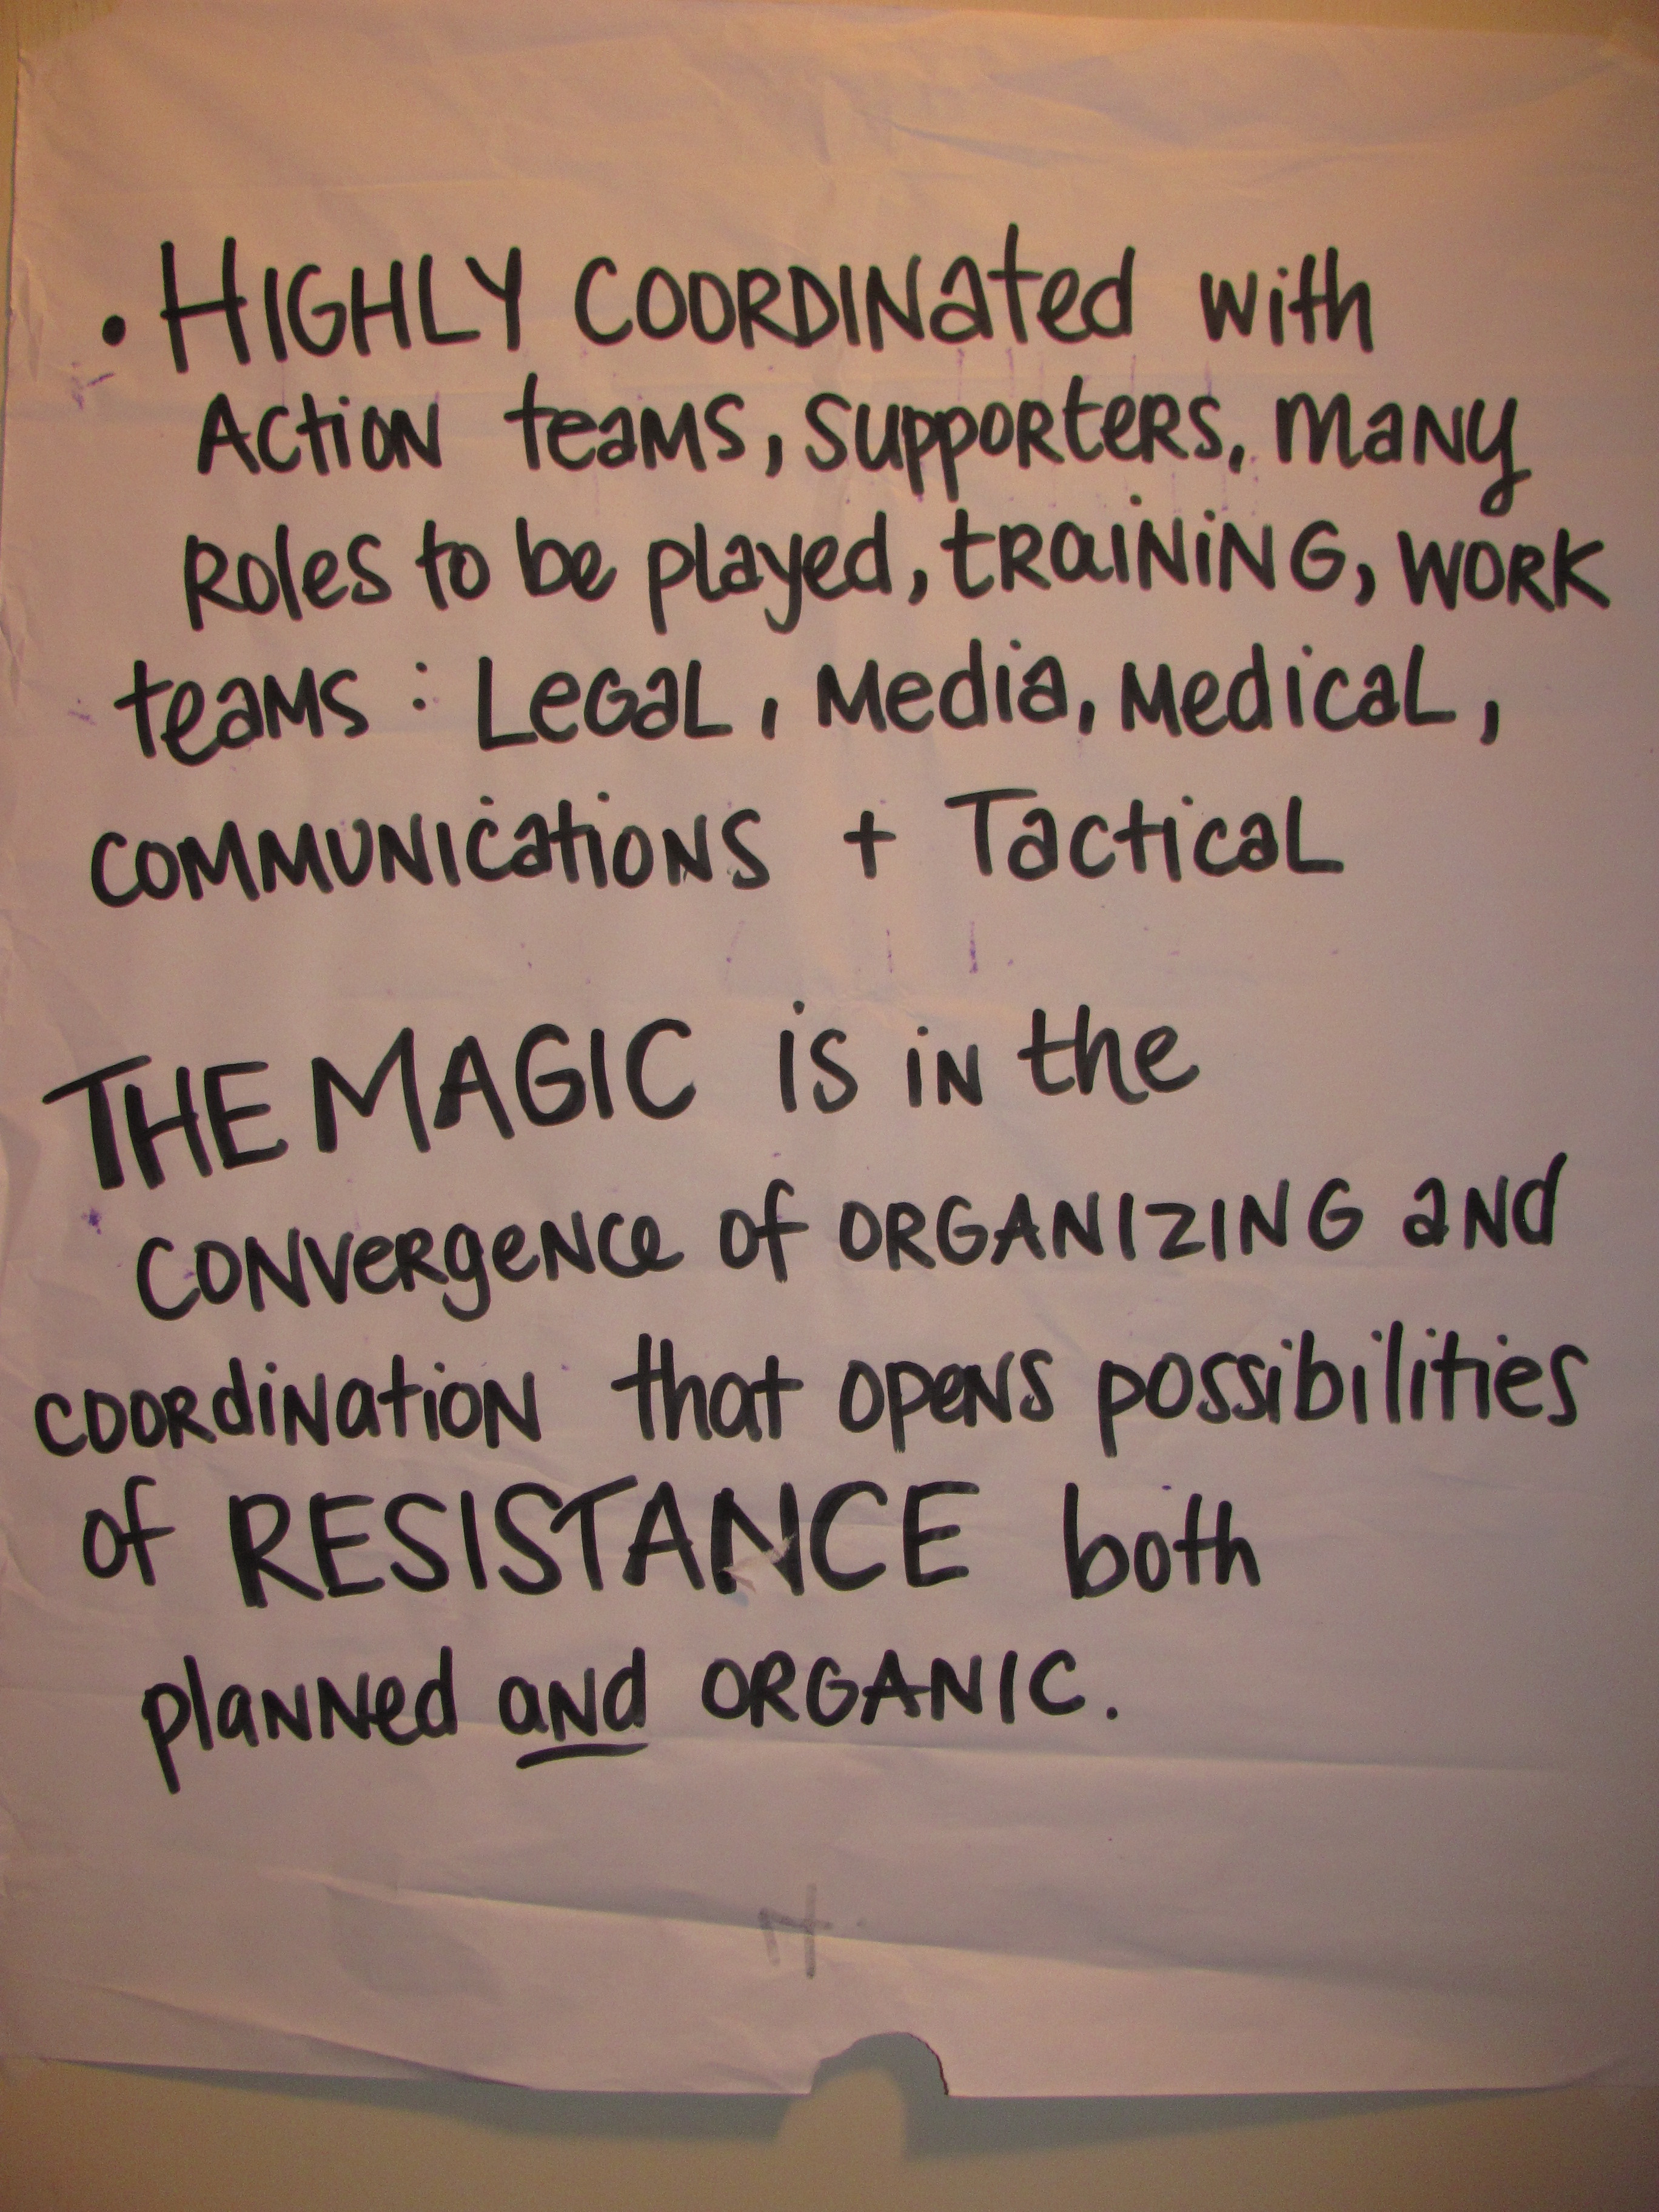 • HIGHLY COORDINated with
Action teams, supporters, many
Roles to be played, training, work
teams : Legal, Media, Medical,
communications + Tactical
THE MAGIC is in the
convergence of ORGANIZING and
coordination that opens possibilities
of RESISTANCE both
planned and ORGANIC.